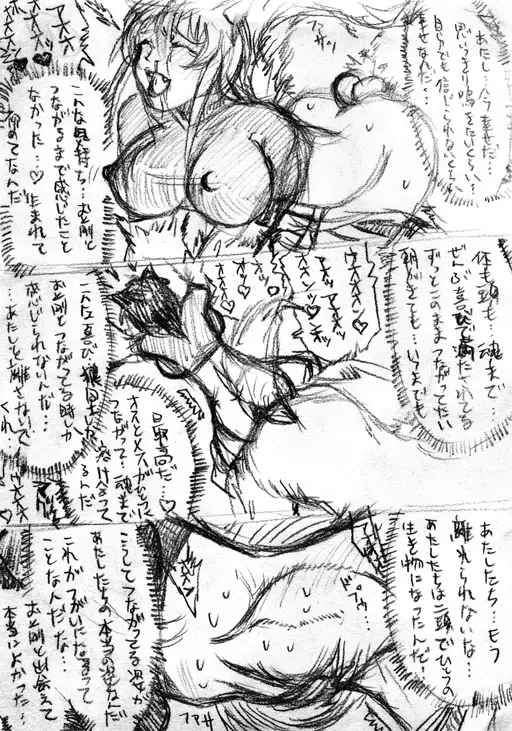 あたし…今幸せだ…
思いっきり鳴きたいくらい…
自分でも信じられないくらい
幸せなんだ…
フサッ
アオオ
こんな気持ち…お前と
つながるまで感じたこと
なかった…♡生まれて
初めてなんだ
体も頭も…魂まで…
ぜんぶ喜びで満たされてる
ずっとこのままつながってたい
朝がきても…いつまでも
こんな喜び
お前とつながってる時しか
感じられないんだ…
…あたしを離さないで
くれ…
最高だ…♡
オスとメスがひとつに
つながって…魂まで
溶け合って
るんだ
あたしたち…もう
離れられないな…
あたしたちは二頭でひとつの
生き物になったんだ…
こうしてつながってる姿が
あたしたちの本当の姿なんだ
これがつがいになるって
ことなんだな…
お前と出会えて
本当によかった…
フアサ